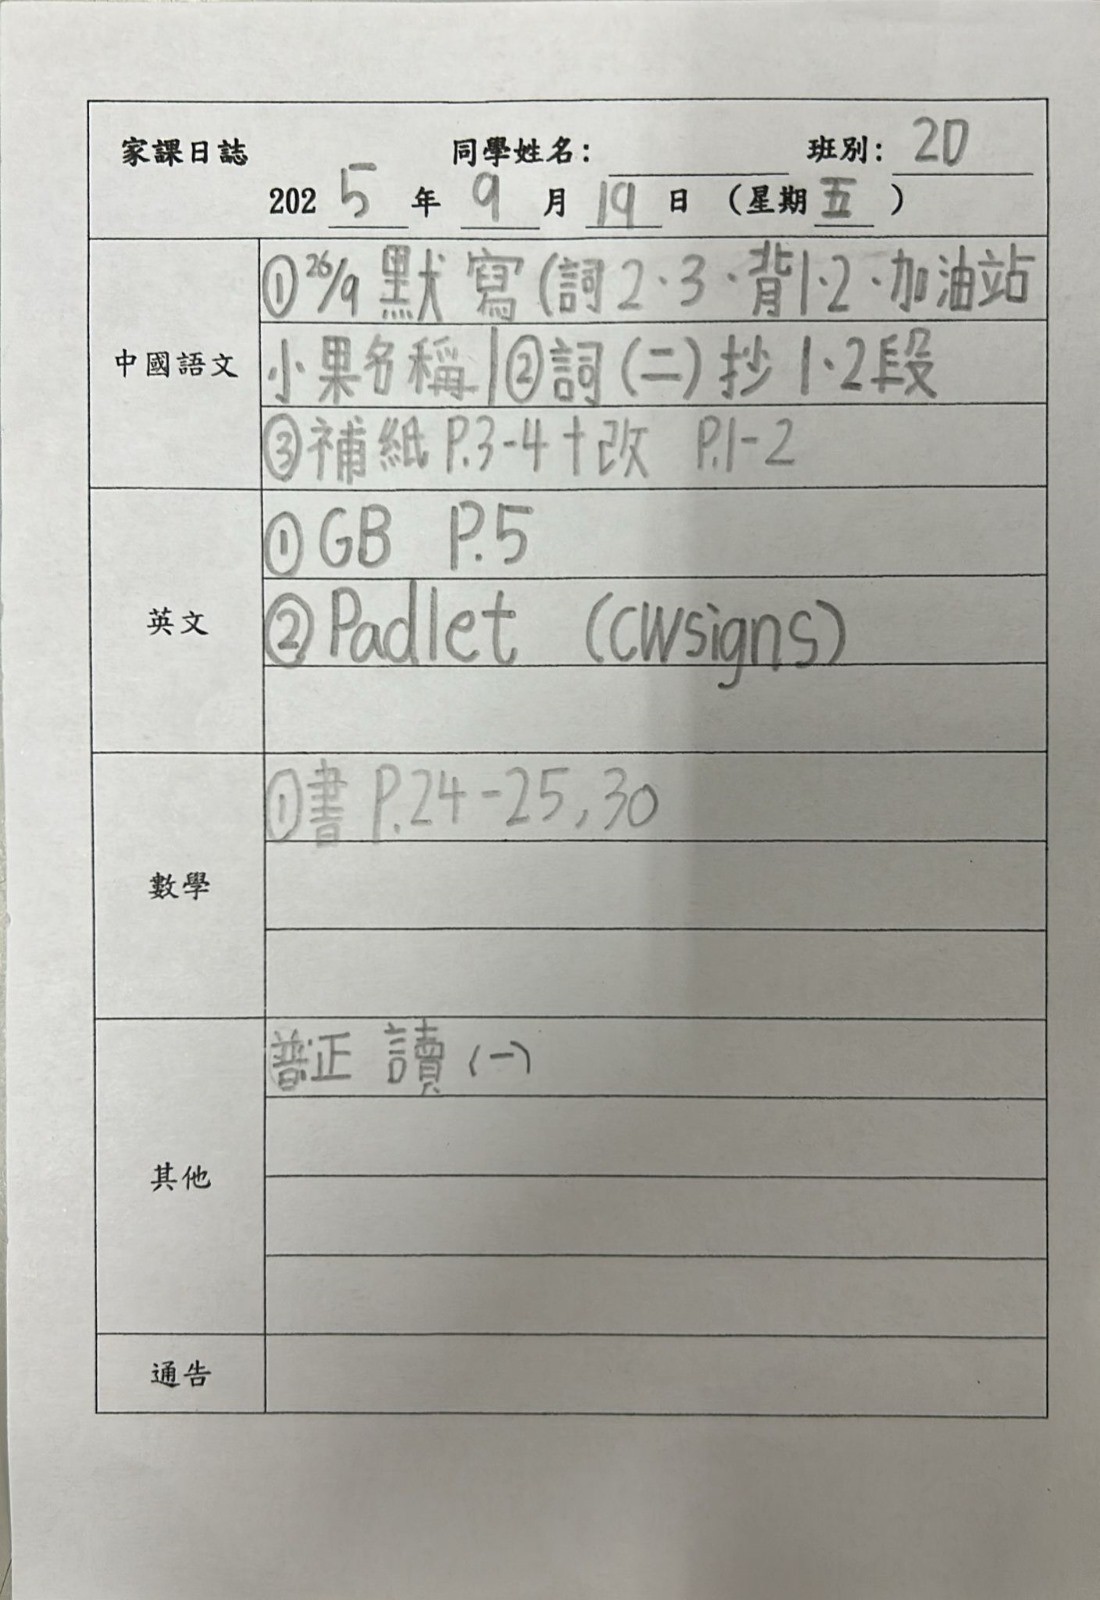 家課日誌 同學姓名: 班別: 2D
2025年9月19日 (星期五)
中國語文
①26/9 默寫(詞2·3·背1·2·加油站
小果名稱|②詞(二)抄1·2段
③補紙 P.3-4+改 P.1-2
英文
①GB P.5
②Padlet (CWsigns)
數學
①書 P.24-25,30
其他
普正 讀(一)
通告